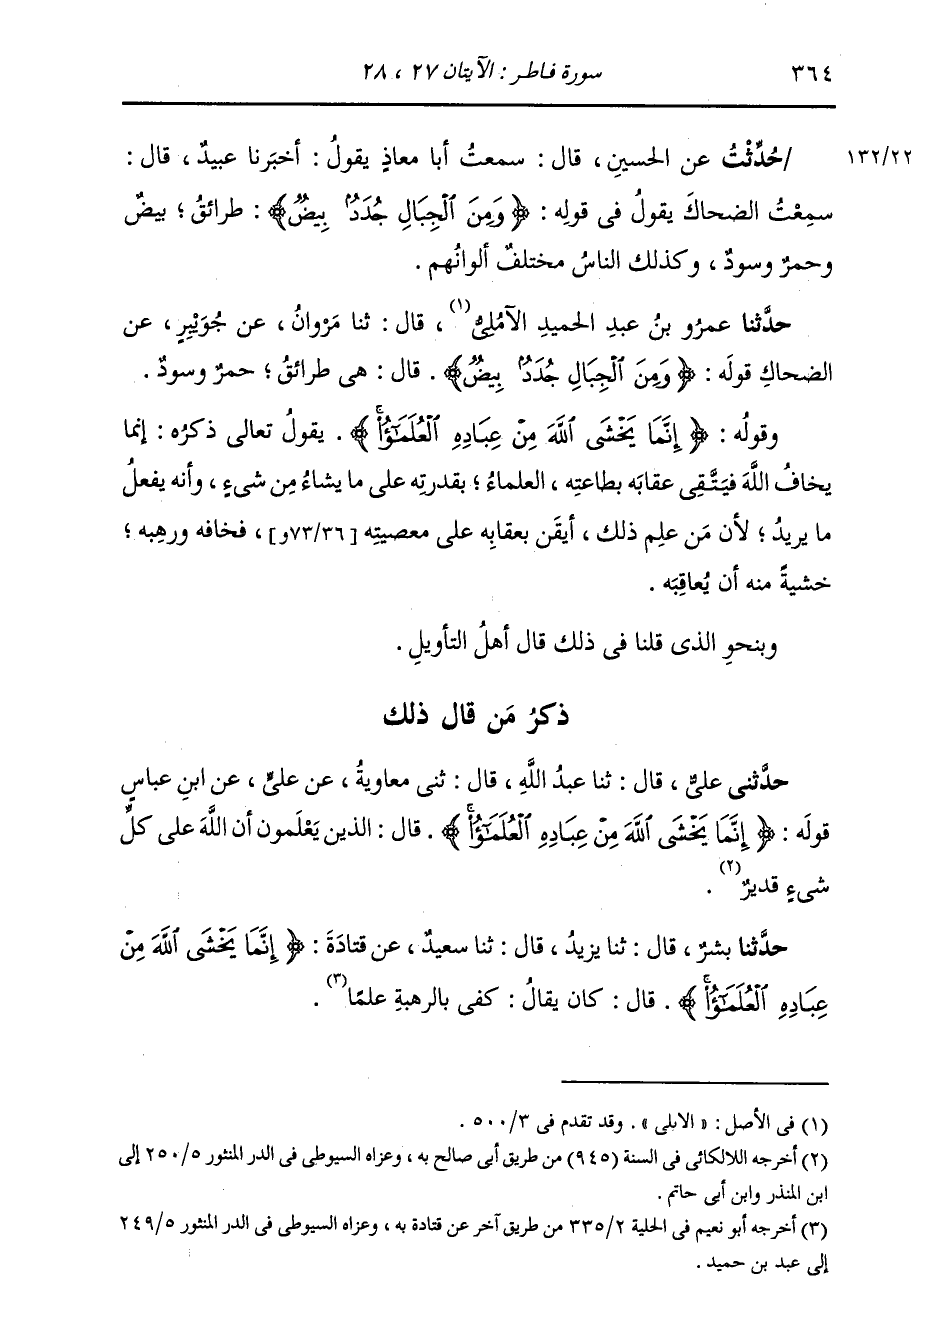 ٣٦٤ سورة فاطر : الآيتان ٢٧ ، ٢٨
١٣٢/٢٢ /حُدِّثْتُ عن الحسينِ ، قال : سمعتُ أبا معاذٍ يقولُ : أخبَرنا عبيدٌ ، قال :
سمِعْتُ الضحاكَ يقولُ فى قولِه : ﴿ وَمِنَ ٱلْجِبَالِ جُدَدٌۢ بِيضٌ﴾ : طرائقُ ؛ بيضٌ
وحمرٌ وسودٌ ، وكذلك الناسُ مختلفٌ ألوانُهم .
حدَّثنا عمرُو بنُ عبدِ الحميدِ الآمُلِىُّ(١) ، قال : ثنا مَرْوانُ ، عن جُوَيْبِرٍ ، عن
الضحاكِ قولَه : ﴿ وَمِنَ ٱلْجِبَالِ جُدَدٌۢ بِيضٌ﴾ . قال : هى طرائقُ ؛ حمرٌ وسودٌ .
وقولُه : ﴿ إِنَّمَا يَخْشَى ٱللَّهَ مِنْ عِبَادِهِ ٱلْعُلَمَٰٓؤُا۟ۚ ﴾ . يقولُ تعالى ذكرُه : إنما
يخافُ اللَّهَ فيَتَّقِى عقابَه بطاعتِه ، العلماءُ ؛ بقدرتِه على ما يشاءُ مِن شىءٍ ، وأنه يفعلُ
ما يريدُ ؛ لأن مَن علِم ذلك ، أيقَن بعقابِه على معصيتِه [ ٧٣/٣٦و] ، فخافه ورهِبه ؛
خشيةً منه أن يُعاقِبَه .
وبنحوِ الذى قلنا فى ذلك قال أهلُ التأويلِ .
ذكرُ مَن قال ذلك
حدَّثنى علىٌّ ، قال : ثنا عبدُ اللَّهِ ، قال : ثنى معاويةُ ، عن علىٍّ ، عن ابنِ عباسٍ
قولَه : ﴿ إِنَّمَا يَخْشَى ٱللَّهَ مِنْ عِبَادِهِ ٱلْعُلَمَٰٓؤُا۟ۚ ﴾ . قال : الذين يَعْلَمون أن اللَّهَ على كلِّ
شىءٍ قديرٌ(٢) .
حدَّثنا بشرٌ ، قال : ثنا يزيدُ ، قال : ثنا سعيدٌ ، عن قتادَةَ : ﴿ إِنَّمَا يَخْشَى ٱللَّهَ مِنْ
عِبَادِهِ ٱلْعُلَمَٰٓؤُا۟ۚ ﴾ . قال : كان يقالُ : كفى بالرهبةِ علمًا(٣) .
(١) فى الأصل : « الابلى » . وقد تقدم فى ٥٠٠/٣ .
(٢) أخرجه اللالكائى فى السنة (٩٤٥) من طريق أبى صالح به ، وعزاه السيوطى فى الدر المنثور ٢٥٠/٥ إلى
ابن المنذر وابن أبى حاتم .
(٣) أخرجه أبو نعيم فى الحلية ٣٣٥/٢ من طريق آخر عن قتادة به ، وعزاه السيوطى فى الدر المنثور ٢٤٩/٥
إلى عبد بن حميد .